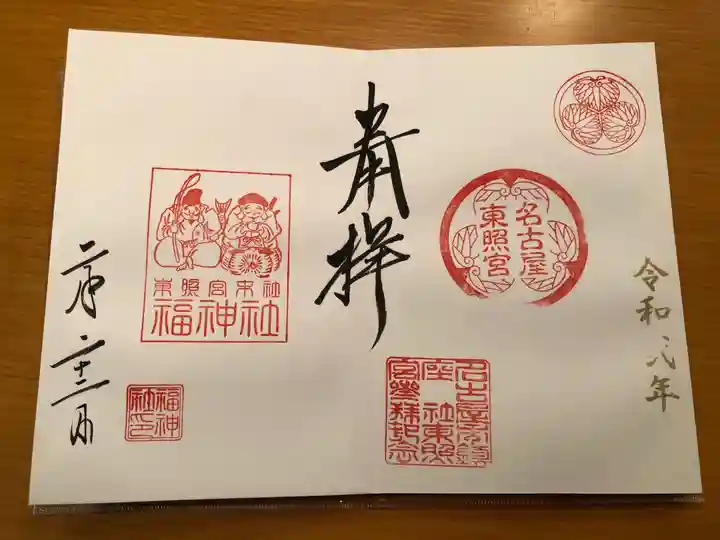 令和年
名古屋
東照宮
奉拝
名古屋市鎮
座 社東照
宮参拝記念
東照宮末社
福神社
福神
社印
二月二十二日